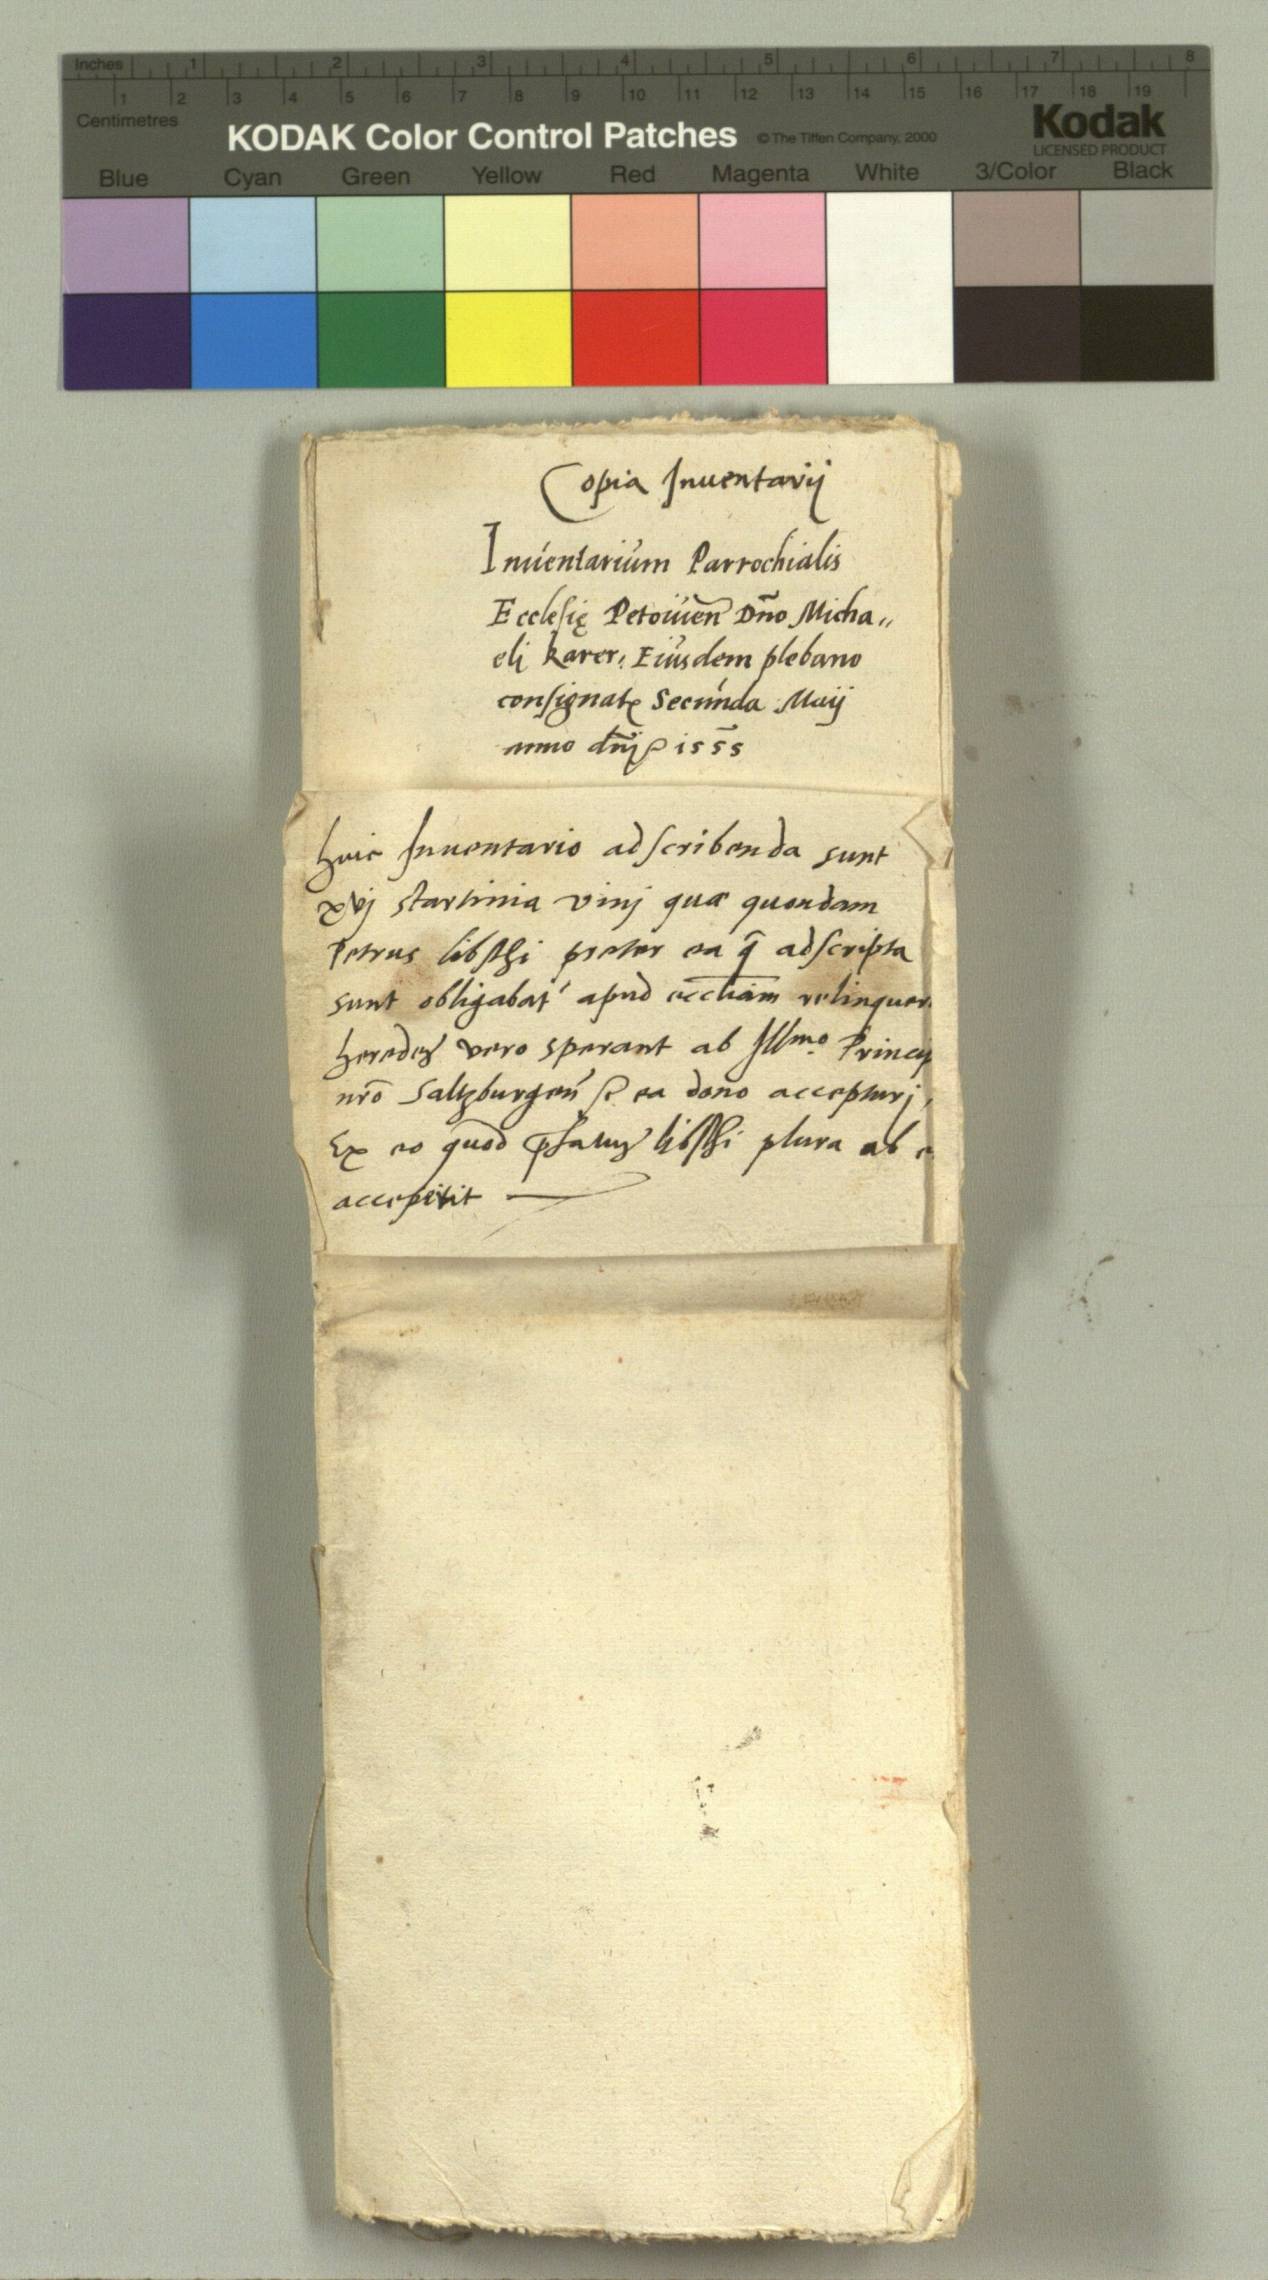 Inches 1 2 3 4 5 6 7 8
1 2 3 4 5 6 7 8 9 10 11 12 13 14 15 16 17 18 19
Centimetres
KODAK Color Control Patches © The Tiffen Company, 2000 Kodak
LICENSED PRODUCT
Blue Cyan Green Yellow Red Magenta White 3/Color Black
Copia Inuentarij
Inuentarium Parrochialis
Ecclesię Petouien Dño Micha„
eli karer: Eiusdem plebano
consignatę Secunda Maij
anno dñj 1555
huic Inuentario adscribenda sunt
xvj startinia vinj quæ quondam
Petrus libsthi preter ea q̃ adscripta
sunt obligabat' apud eccliam relinquer
heredes vero sperant ab Illmo. Princip
nrõ Saltzburgeñ ea dono accepturj,
Ex eo quod libsthi plura ab e
acceperit